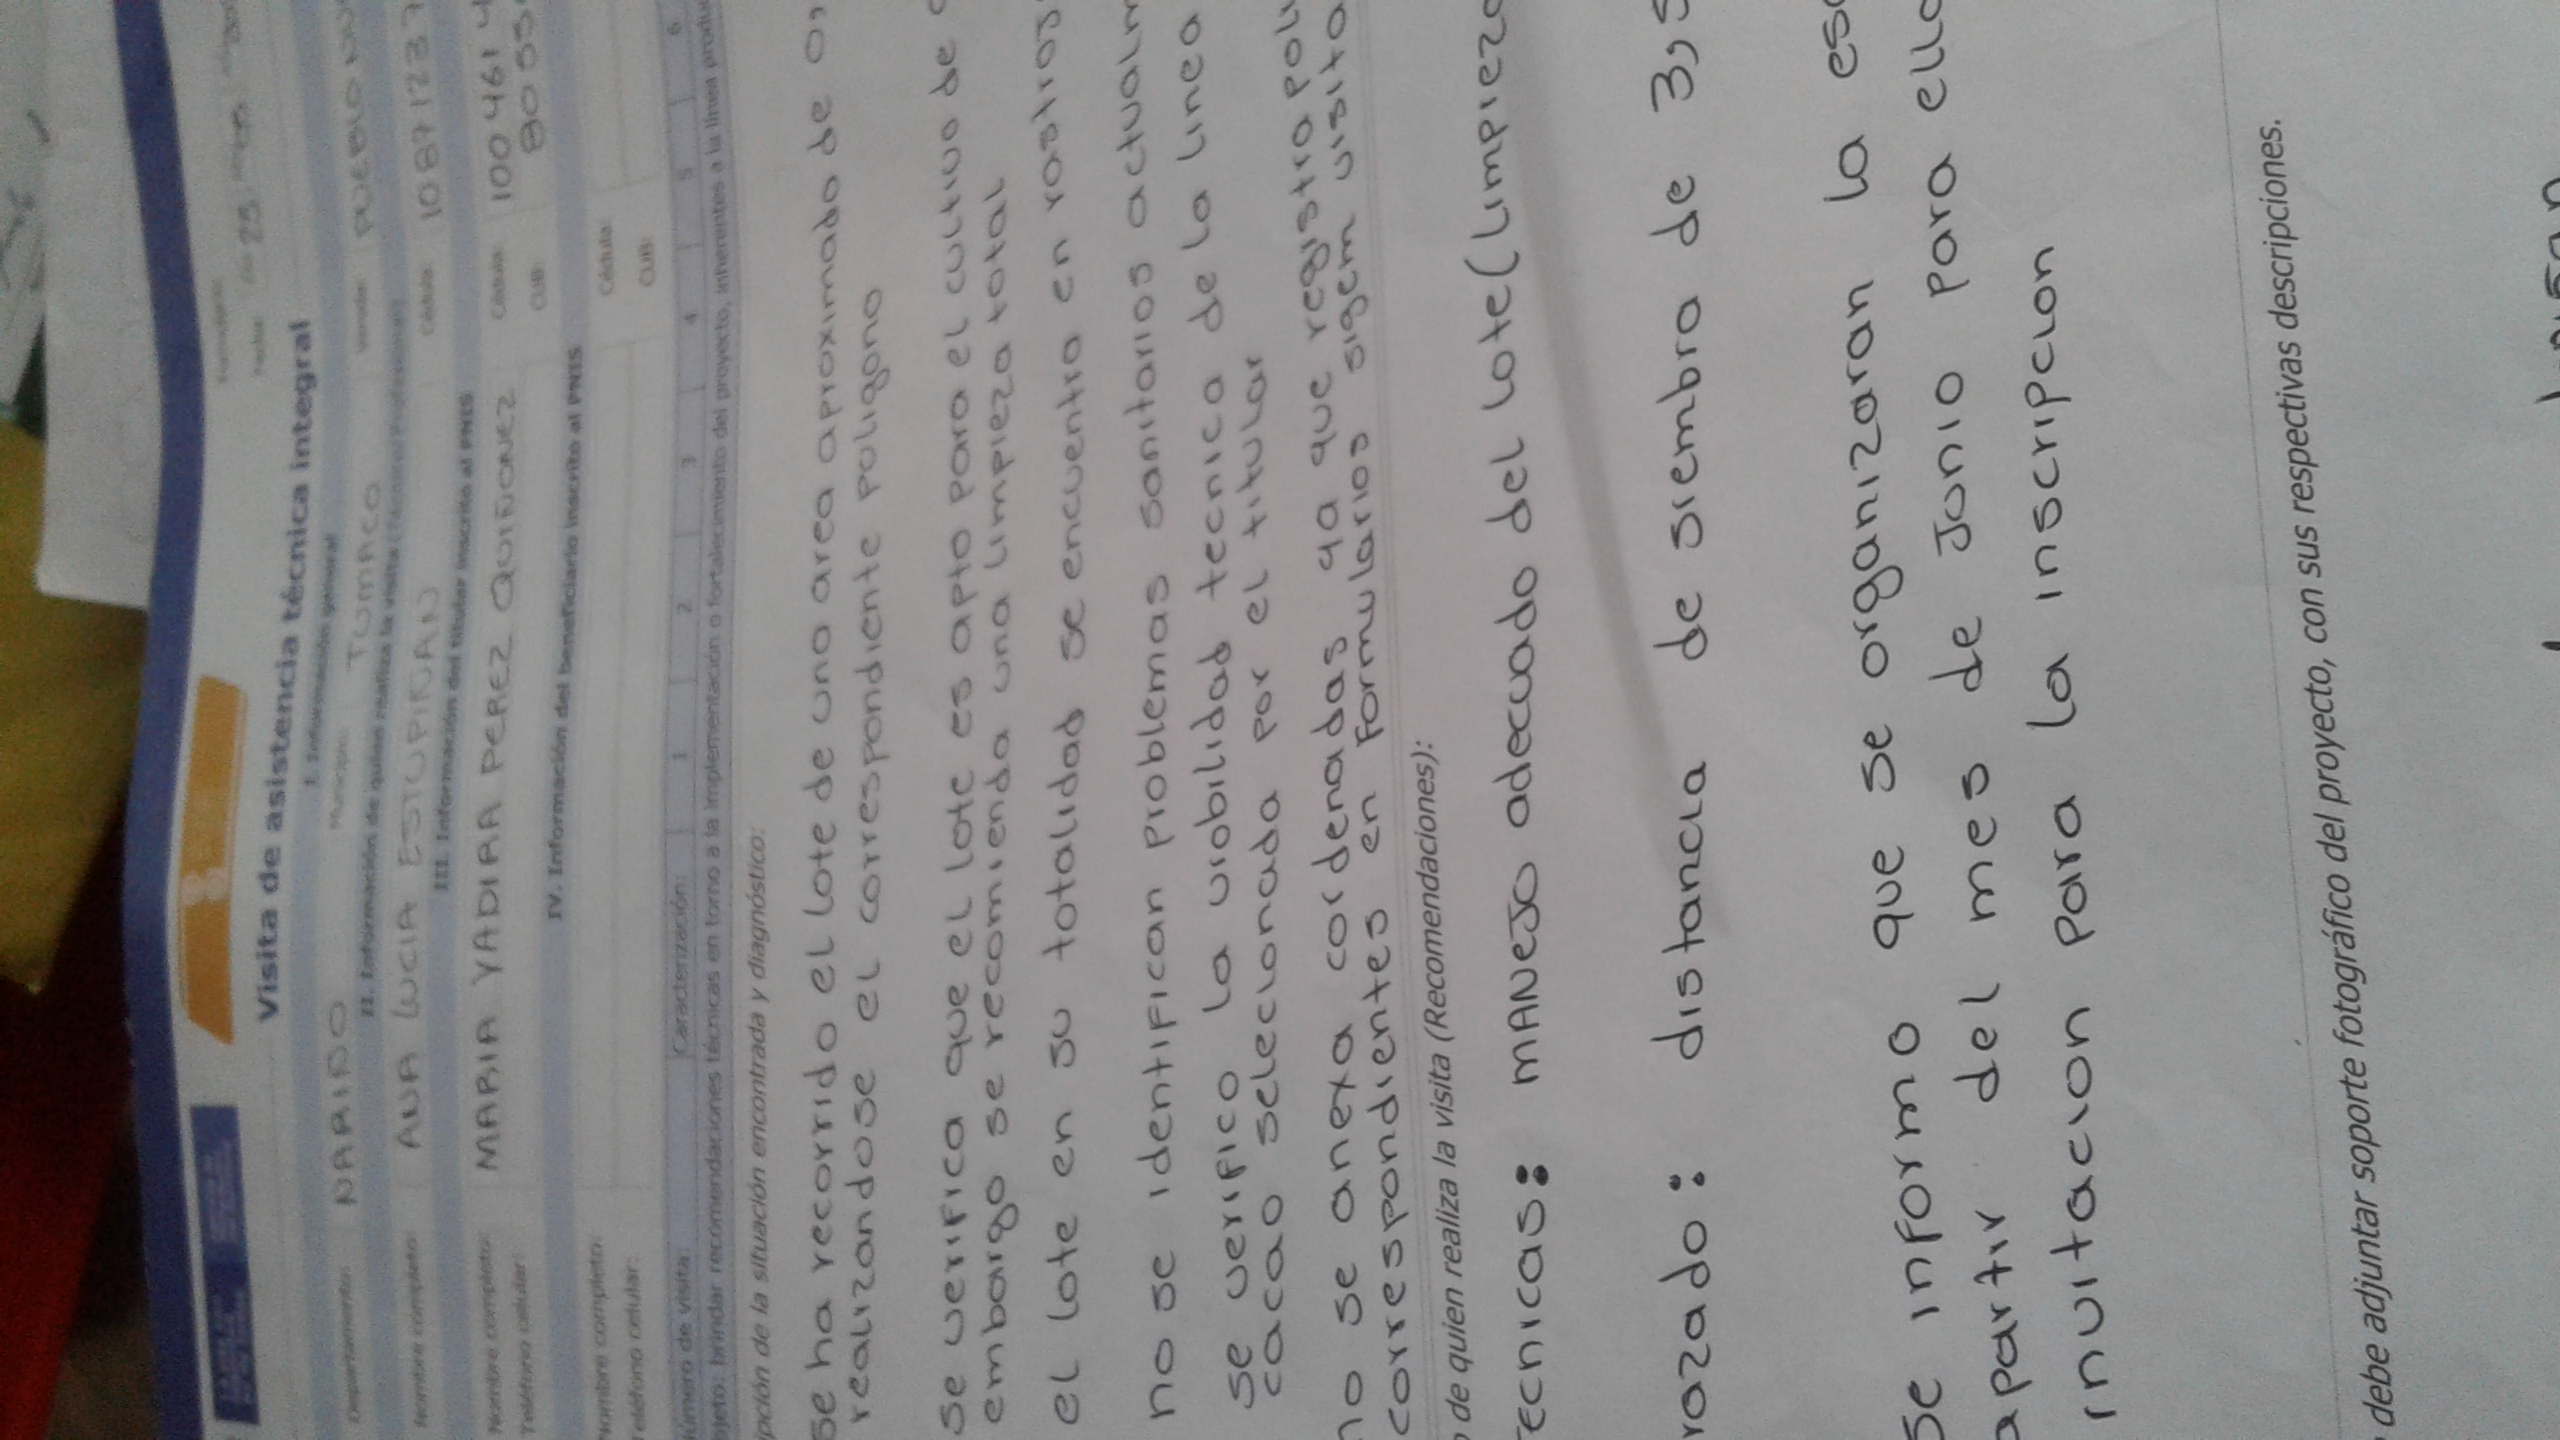 Visita de asistencia técnica integral
I. Información general
Departamento: NARIÑO Municipio: TUMACO Vereda: PUEBLO NUE
II. Información de quien realiza la visita
Nombre completo: ANA LUCIA ESTUPIÑAN Cédula: 10871237
III. Información del titular inscrito al PNIS
Nombre completo: MARIA YADIRA PEREZ QUIÑONEZ Cédula: 1004614
Teléfono celular: CUB: 8055
IV. Información del beneficiario inscrito al PNIS
Nombre completo: Cédula:
eléfono celular: CUB:
úmero de visita: Caracterización: 1 2 3 4 5 6
bjeto: brindar recomendaciones técnicas en torno a la implementación o fortalecimiento del proyecto, inherentes a la línea produ
ipción de la situación encontrada y diagnóstico:
se ha recorrido el lote de una area aproximada de 0,
realizandose el correspondiente poligono
se verifica que el lote es apto para el cultivo de
embargo se recomienda una limpieza total
el lote en su totalidad se encuentra en rastroj
no se identifican problemas sanitarios actualm
se verifico la viabilidad tecnica de la linea
cacao seleclonada por el titular
no se anexa cordenadas ya que registra poli
correspondientes en formularios sigem visita
de quien realiza la visita (Recomendaciones):
ecnicas: manejo adecuado del lote (limpieza
razado: distancia de siembra de 3,5
se informo que se organizaran la es
apartir del mes de Junio para ello
invitacion para la inscripcion
debe adjuntar soporte fotográfico del proyecto, con sus respectivas descripciones.